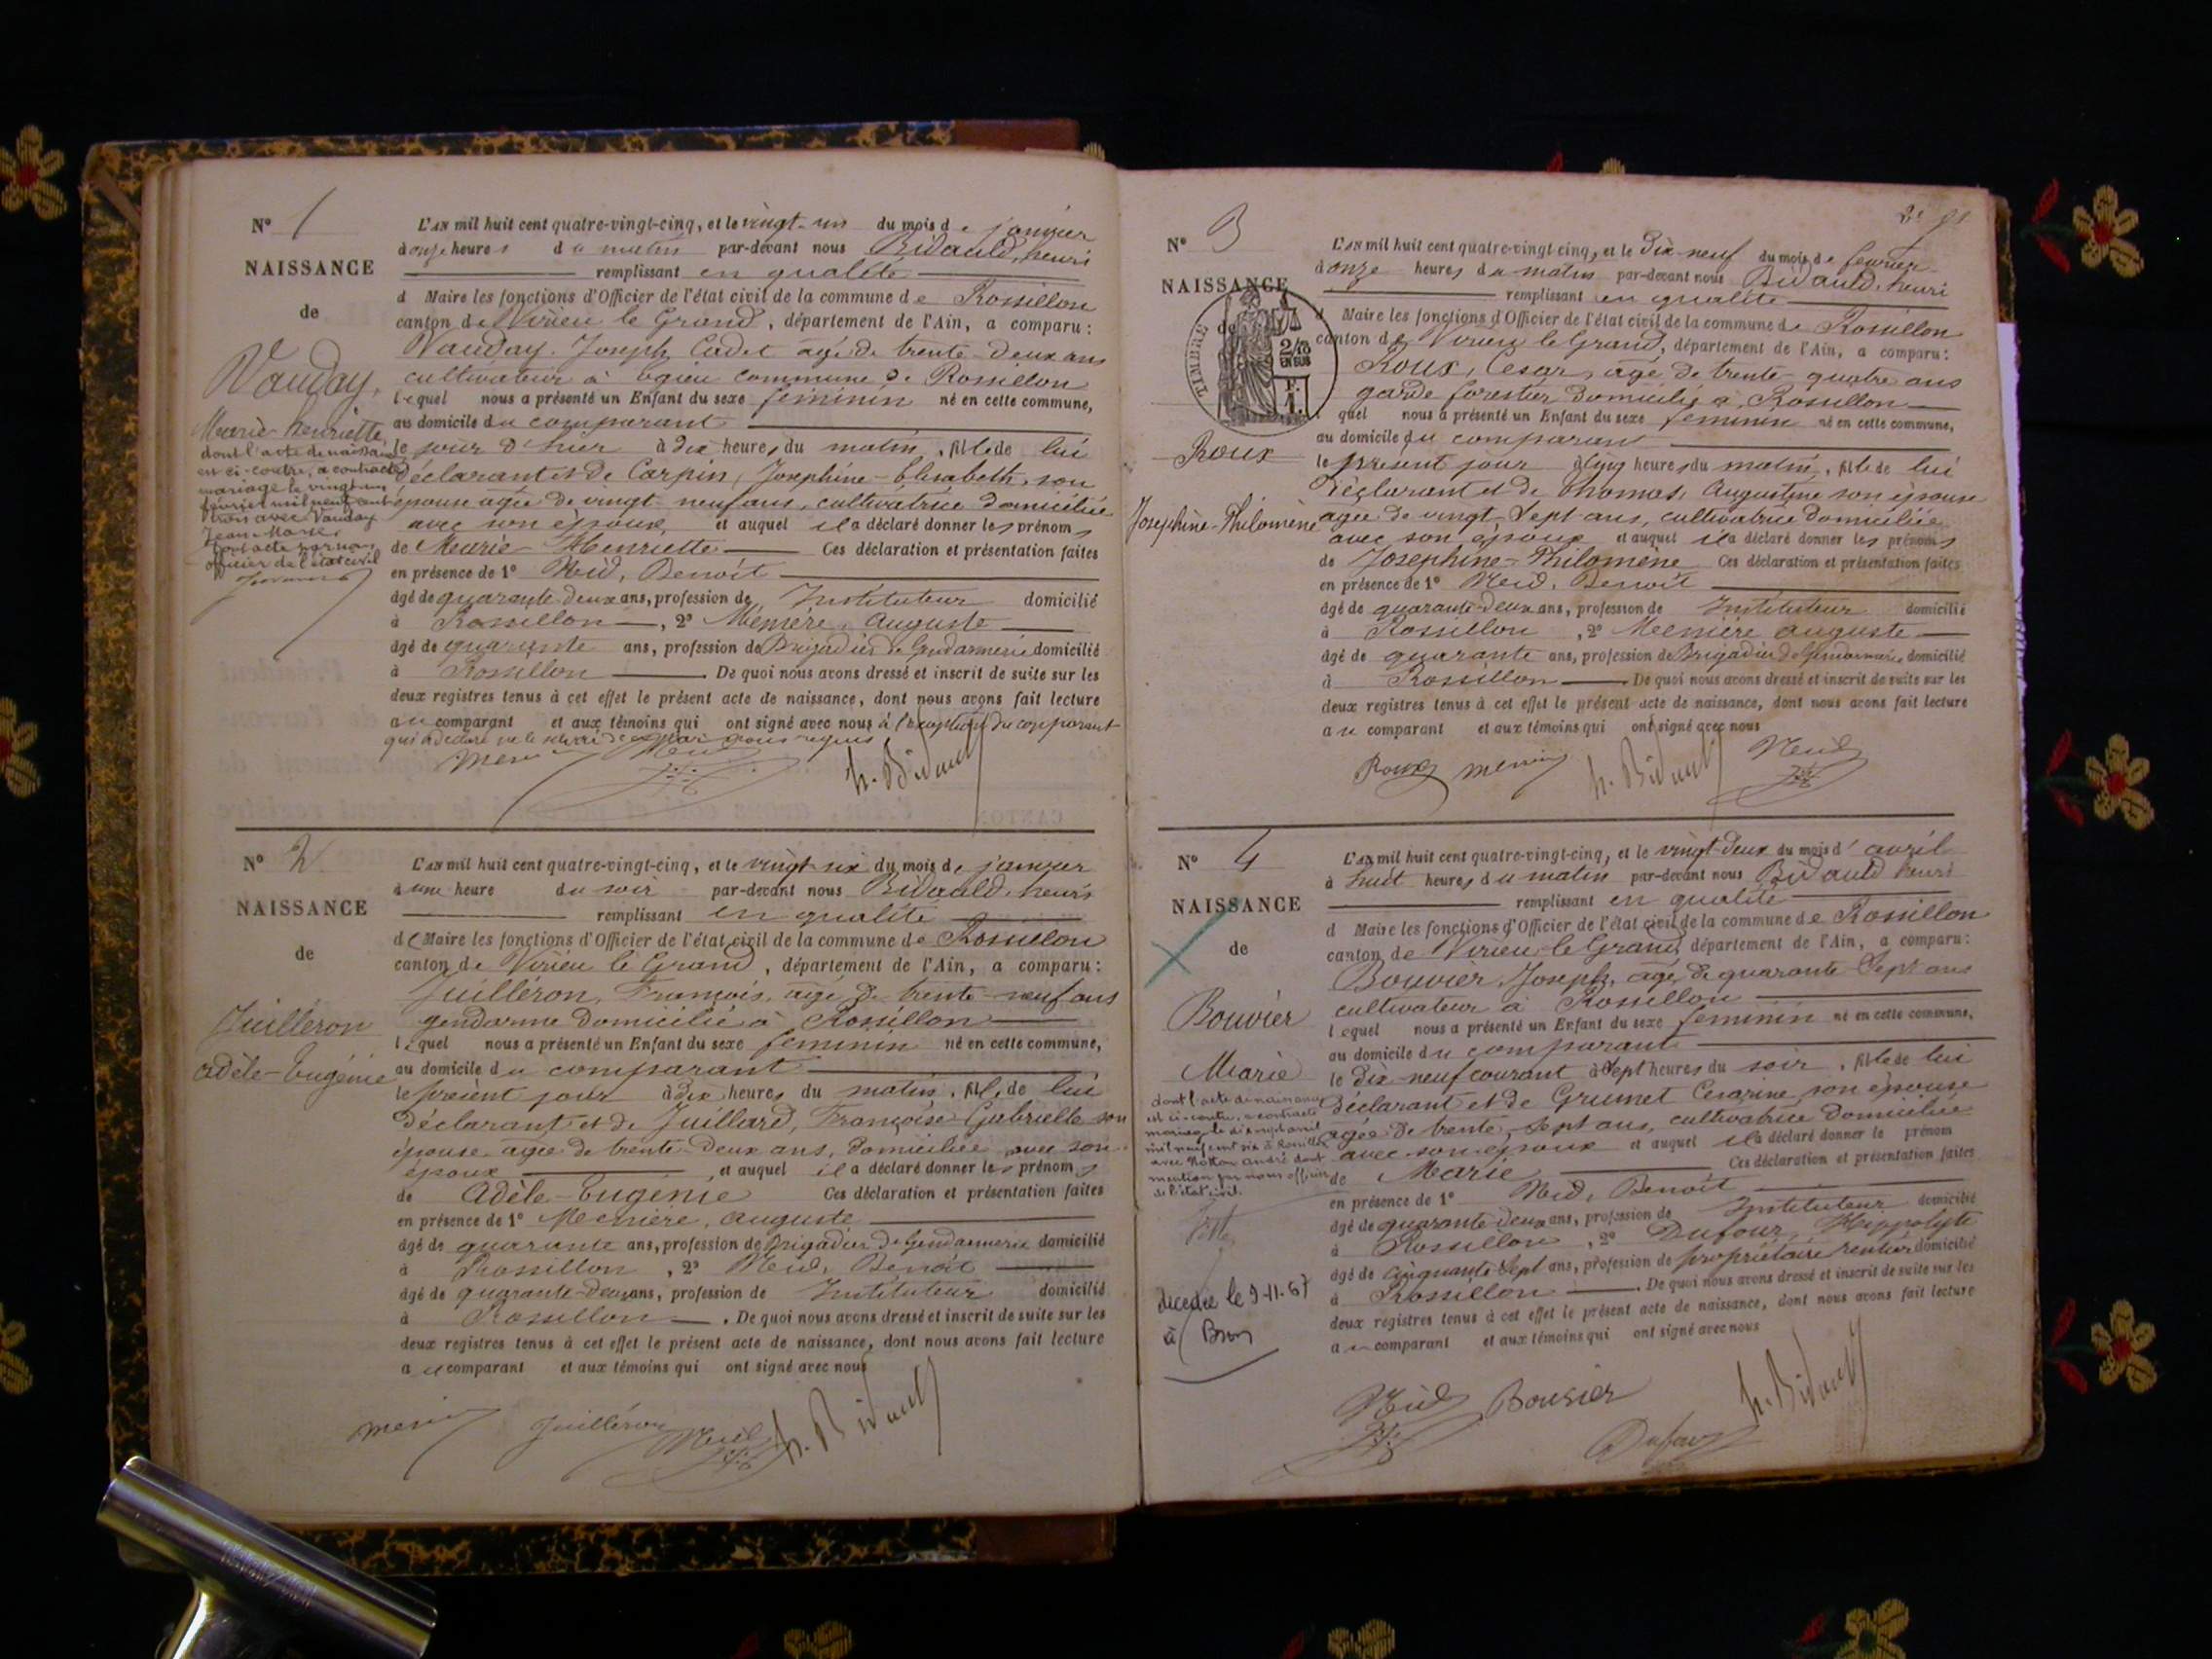 N° 1
NAISSANCE
de
Vauday,
Marie-Henriette
dont l'acte de naissance
est ci-contre, a contracté
mariage le vingt un
février mil neuf cent
trois avec Vauday
Jean-Marie,
officier de l'état civil
L'AN mil huit cent quatre-vingt-cinq, et le vingt-un du mois de janvier
à onze heures du matin par-devant nous Bidauld, henri
remplissant en qualité
d Maire les fonctions d'Officier de l'état civil de la commune de Rossillon
canton de Virieu le Grand, département de l'Ain, a comparu :
Vauday, Joseph Cadet agé de trente-deux ans
cultivateur à Ogieu commune de Rossillon
lequel nous a présenté un Enfant du sexe féminin né en cette commune,
au domicile du comparant
le jour d'hier à dix heures du matin, fille de lui
déclarant et de Carpin, Joséphine-Elisabeth, son
épouse agée de vingt-neuf ans, cultivatrice domiciliée
avec son époux, et auquel il a déclaré donner les prénoms
de Marie-Henriette Ces déclaration et présentation faites
en présence de 1° Neid, Benoît
âgé de quarante-deux ans, profession de Instituteur domicilié
à Rossillon, 2° Menière, Auguste
âgé de quarante ans, profession de Brigadier de Gendarmerie domicilié
à Rossillon. De quoi nous avons dressé et inscrit de suite sur les
deux registres tenus à cet effet le présent acte de naissance, dont nous avons fait lecture
au comparant et aux témoins qui ont signé avec nous à l'exception du comparant
qui a déclaré ne le savoir de ce par nous requis
h. Bidauld
N° 2
NAISSANCE
de
Juilléron
Adèle-Eugénie
L'AN mil huit cent quatre-vingt-cinq, et le vingt-six du mois de janvier
à une heure du soir par-devant nous Bidauld, henri
remplissant en qualité
de Maire les fonctions d'Officier de l'état civil de la commune de Rossillon
canton de Virieu le Grand, département de l'Ain, a comparu :
Juilléron, François, agé de trente-neuf ans
gendarme domicilié à Rossillon
lequel nous a présenté un Enfant du sexe féminin né en cette commune,
au domicile du comparant
le présent jour à dix heures du matin, fille de lui
déclarant et de Juillard, Françoise Gabrielle son
épouse agée de trente-deux ans, domiciliée avec son
époux, et auquel il a déclaré donner les prénoms
de Adèle-Eugénie Ces déclaration et présentation faites
en présence de 1° Menière, Auguste
âgé de quarante ans, profession de Brigadier de Gendarmerie domicilié
à Rossillon, 2° Neid, Benoît
âgé de quarante-deux ans, profession de Instituteur domicilié
à Rossillon. De quoi nous avons dressé et inscrit de suite sur les
deux registres tenus à cet effet le présent acte de naissance, dont nous avons fait lecture
au comparant et aux témoins qui ont signé avec nous
Juilléron Neid h. Bidauld
N° 3
NAISSANCE
de
TIMBRE
2/10
EN SUS
F.
1.
Roux
Joséphine-Philomène
L'AN mil huit cent quatre-vingt-cinq, et le dix-neuf du mois de février
à onze heures du matin par-devant nous Bidauld, henri
remplissant en qualité
d Maire les fonctions d'Officier de l'état civil de la commune de Rossillon
canton de Virieu le Grand, département de l'Ain, a comparu :
Roux, César, agé de trente-quatre ans
garde forestier domicilié à Rossillon
quel nous a présenté un Enfant du sexe féminin né en cette commune,
au domicile du comparant
le présent jour à cinq heures du matin, fille de lui
déclarant et de Thomas, Augustine son épouse
agée de vingt-sept ans, cultivatrice domiciliée
avec son époux et auquel il a déclaré donner les prénoms
de Joséphine-Philomène Ces déclaration et présentation faites
en présence de 1° Neid, Benoît
âgé de quarante-deux ans, profession de Instituteur domicilié
à Rossillon, 2° Menière Auguste
âgé de quarante ans, profession de Brigadier de Gendarmerie domicilié
à Rossillon. De quoi nous avons dressé et inscrit de suite sur les
deux registres tenus à cet effet le présent acte de naissance, dont nous avons fait lecture
au comparant et aux témoins qui ont signé avec nous
Roux h. Bidauld Neid
N° 4
NAISSANCE
de
Bouvier
Marie
dont l'acte de naissance
est ci-contre, a contracté
mariage le dix sept avril
mil neuf cent six à Rossillon
avec Notton André dont
mention par nous officier
de l'état civil.
décédée le 9-11-67
à Bron
L'AN mil huit cent quatre-vingt-cinq, et le vingt-deux du mois d'avril
à huit heures du matin par-devant nous Bidauld henri
remplissant en qualité
d Maire les fonctions d'Officier de l'état civil de la commune de Rossillon
canton de Virieu le Grand, département de l'Ain, a comparu :
Bouvier, Joseph, agé de quarante-sept ans
cultivateur à Rossillon
lequel nous a présenté un Enfant du sexe féminin né en cette commune,
au domicile du comparant
le dix-neuf courant à sept heures du soir, fille de lui
déclarant et de Grumet Césarine, son épouse
agée de trente-sept ans, cultivatrice domiciliée
avec son époux et auquel il a déclaré donner le prénom
de Marie Ces déclaration et présentation faites
en présence de 1° Neid, Benoît
âgé de quarante-deux ans, profession de Instituteur domicilié
à Rossillon, 2° Dufour, Hippolyte
âgé de cinquante-sept ans, profession de propriétaire rentier domicilié
à Rossillon. De quoi nous avons dressé et inscrit de suite sur les
deux registres tenus à cet effet le présent acte de naissance, dont nous avons fait lecture
au comparant et aux témoins qui ont signé avec nous
Neid Bouvier h. Bidauld
Dufour